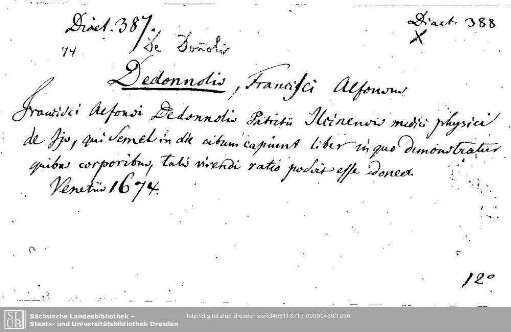 Diaet. 387.
Diaet. 388
74
De Donolis
X
Dedonnolis, Francisci Alfonsus
Francisci Alfonsi Dedonnolis Patritii Ilcinensis medici physici
de iis, qui semel in die cibum capiunt liber in quo demonstratur
quibus corporibus, talis vivendi ratio possit esse idonea
Venetiis 1674.
12°
Sächsische Landesbibliothek –
Staats- und Universitätsbibliothek Dresden